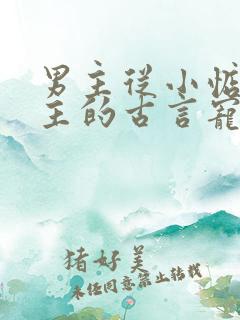 男主从小惦
主的古言寵
猪好美
未经同意禁止转载